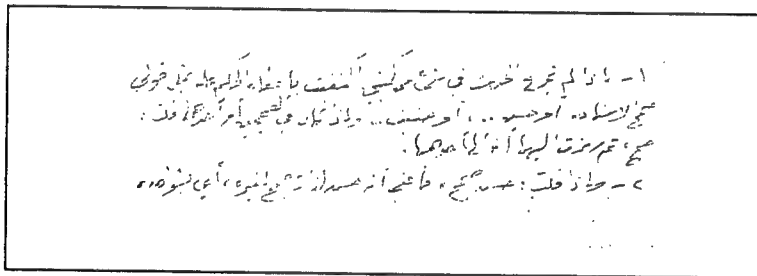 ١- وإذا لم نجد الحديث في شيء من كتبي اكتفيت بإعطاء الحكم عليه بمثل قولي
صحيح الإسناد، أو حسن ..، أو ضعيف .. وإذا كان في الصحيحين أو أحدهما قلت:
صحيح، ثم رمزت إليهما أو إلى أحدهما.
٢- وإذا قلت: حسن صحيح، فأعني أنه حسن لذاته صحيح لغيره، أي بشواهده